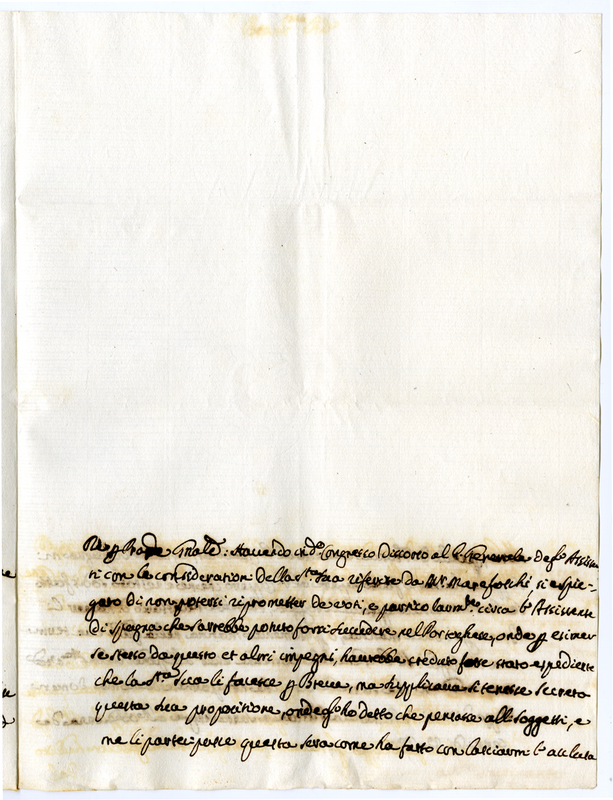 Re P Prāpe Gnale: Havendo in d.º Congresso discorso al P. Generale degl' Assisten
ti con le consideration della S.tà Sua riferite da M.r Marefoschi si è spie-
gato di non potersi riprometter de voti, e particolarm.te circa l' Assistente
di Spagna che sarebbe potuto forsi succedere nel Portoghese, onde p esimer
se stesso da questo et altri impegni, haurebbe creduto fosse stato espediente
che la S.tà Sua li facesse p Breve, ma supplicava si tenesse secreta
questa sua propositione, ond' egli ho detto che pensasse alli soggetti, e
me li partecipasse questa sera come ha fatto con lasciarmi l' acclusa